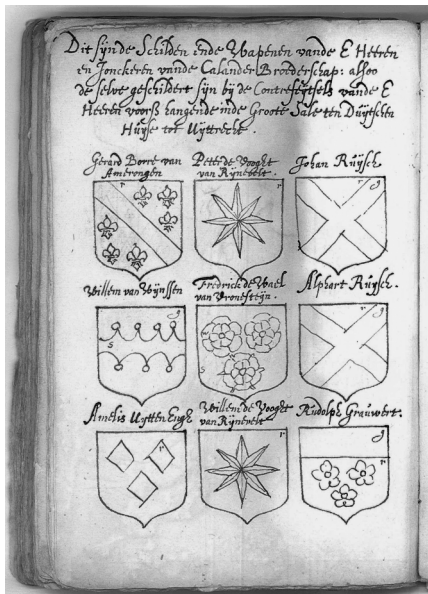 Dit sijn de Schilden ende Wapenen vande E Heeren
en Jonckeren vande Calander Broederschap: alsoo
de selve geschildert sijn bij de Contrefeijtsels vande E
Heeren voorß hangende inde Groote Sale ten Duijtschen
Huijse tot Uijttrecht.
Gerard Borre van
Amerongen
Peter de Vooght
van Rijnevelt.
Johan Ruijsch
r
r
g
Willem van Wijnssen
Fredrick de Wael
van Vronesteijn.
Alphart Ruijsch.
g
s
s
g
Amelis Uijtten Engh
Willem de Vooght
van Rijnevelt
Rudolph Grauwert.
r
r
g
r